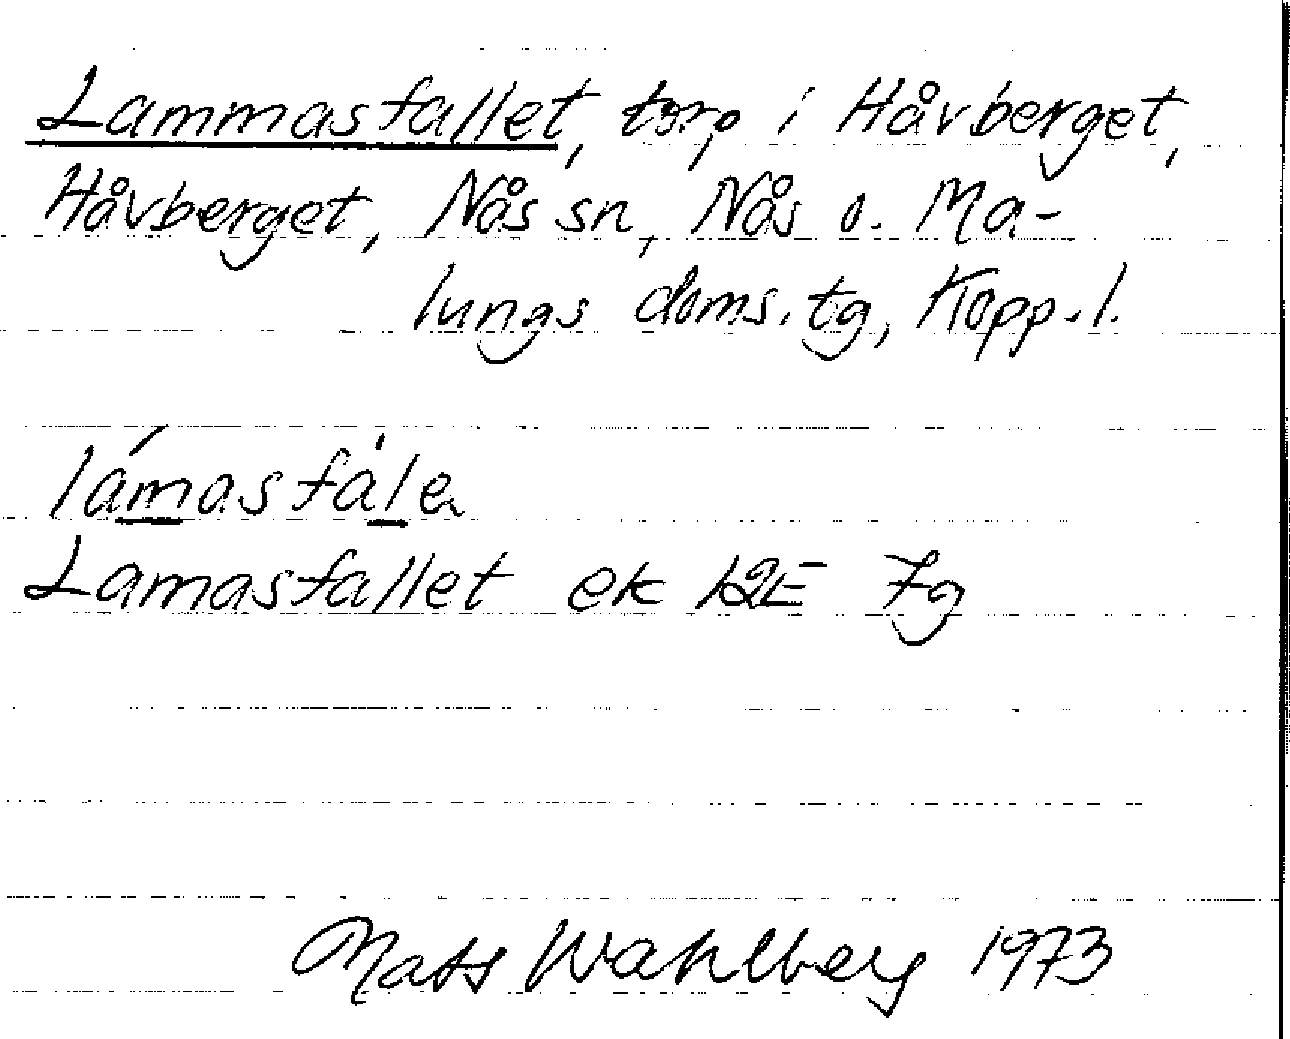 Lammasfallet, torp i Håvberget,
Håvberget, Nås sn, Nås o. Ma-
lungs doms. tg, Kopp. l.
lámasfàle
Lamasfallet ek 12E 7g
Mats Wahlberg 1973